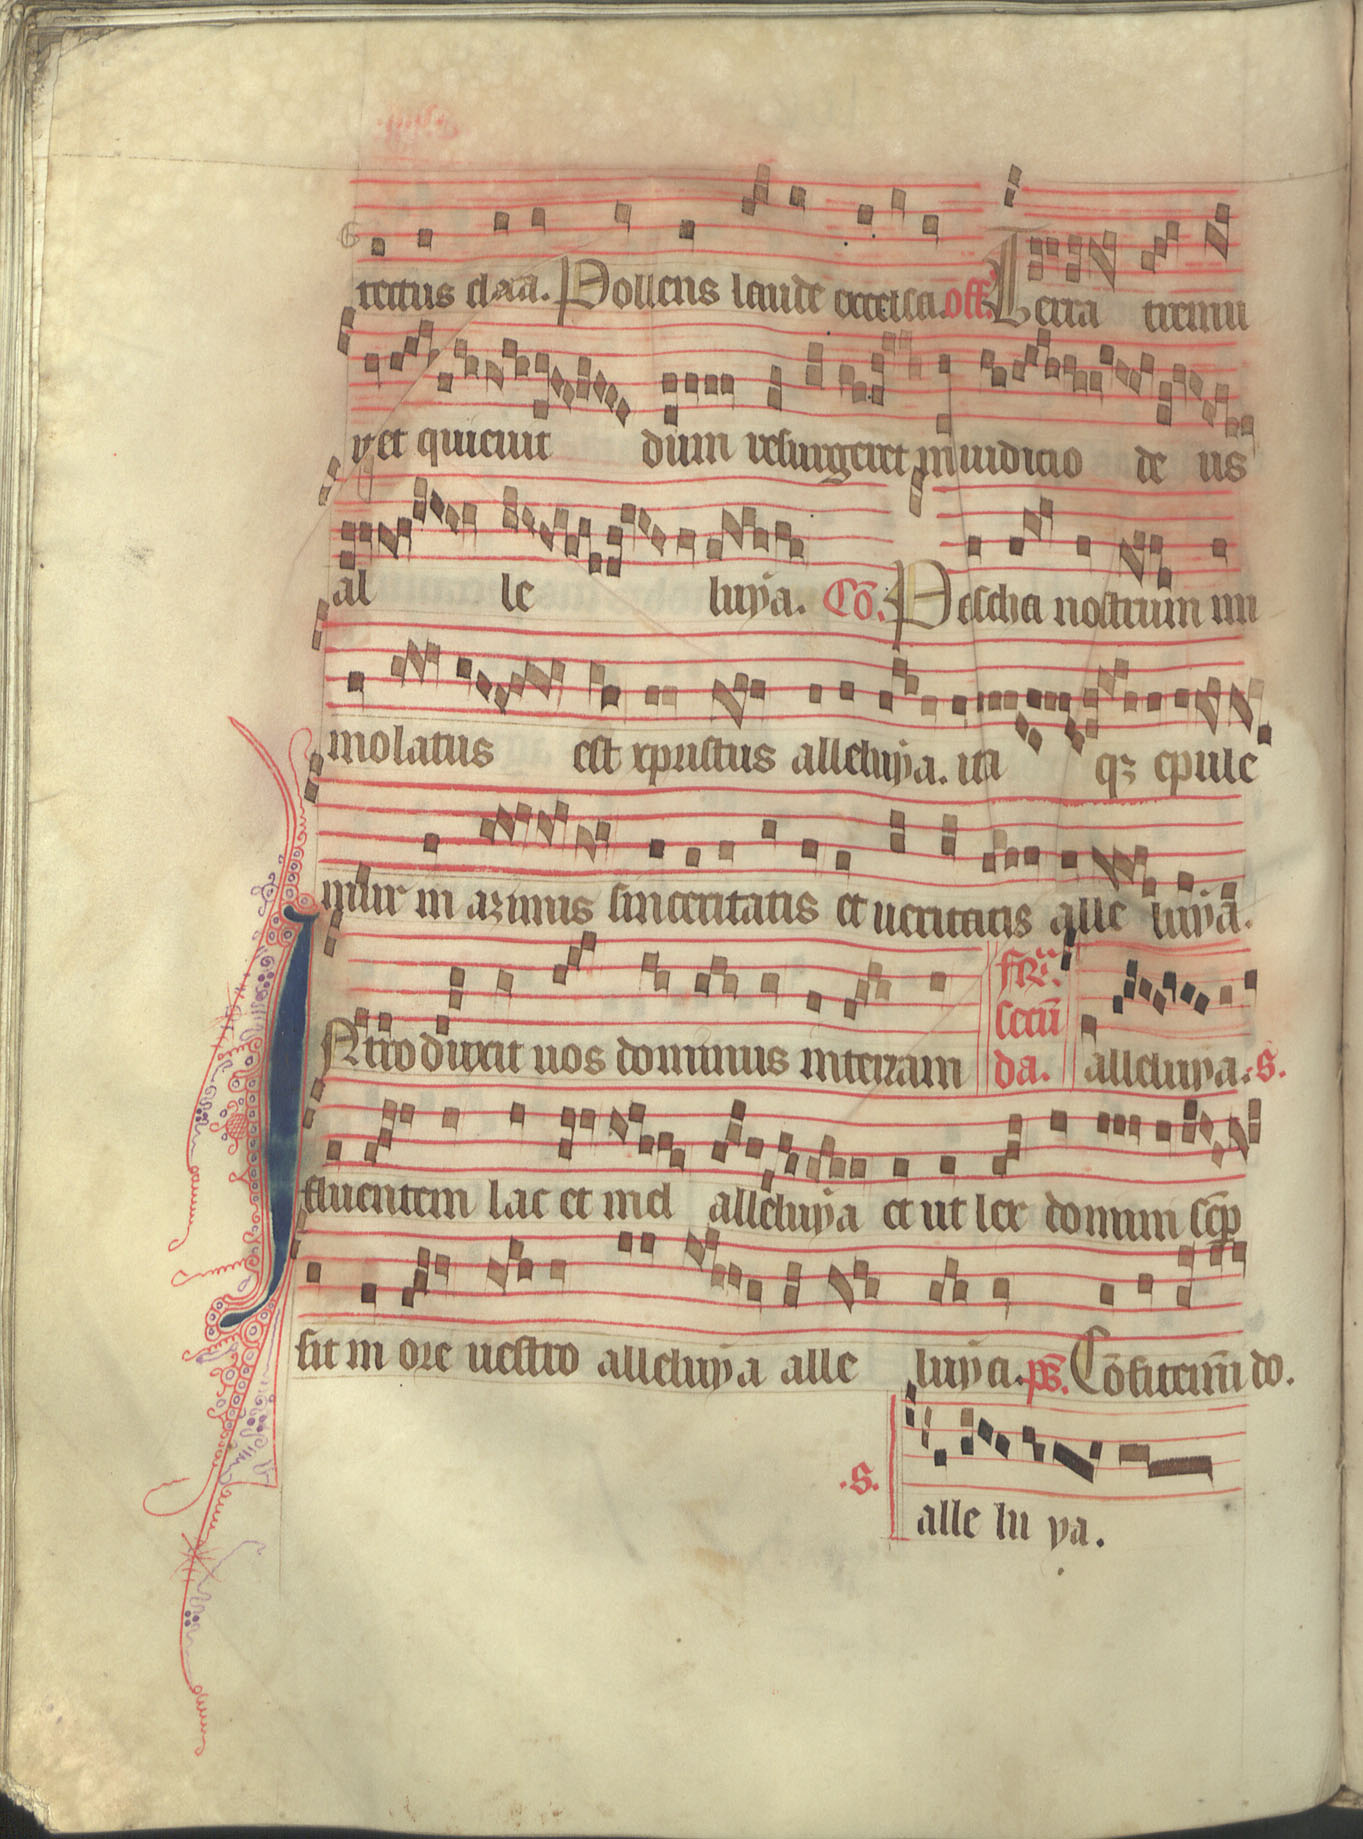 rectus claā. Pollens laude excelsa. off. Terra tremu
it et quieuit dum resurgeret in iudicio de us
al le luya. Cō. Pascha nostrum im
molatus est xpristus alleluya. ita qȝ epule
mur in azimis sinceritatis et ueritatis alle luya.
Ntroduxit uos dominus in terram
fR͞i.
secū
da.
alleluya. S.
fluentem lac et mel alleluya et ut lex domini sēp
sit in ore uestro alleluya alle luya. ps̄. Cōfitemi͞ do.
.S. alle lu ya.